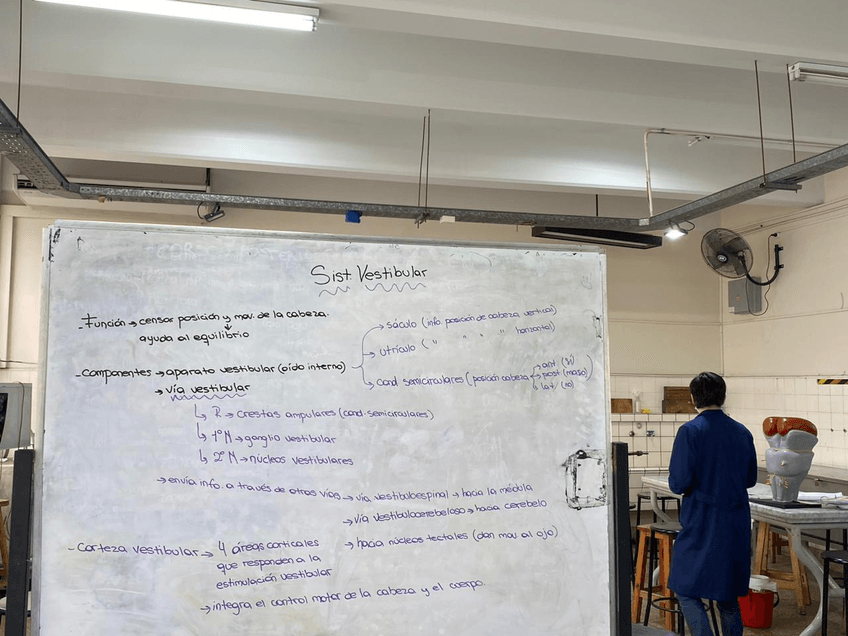 Sist. Vestibular
- Función → censor posición y mov. de la cabeza.
↓
ayuda al equilibrio
- Componentes → aparato vestibular (oído interno)
→ sáculo (info. posición de cabeza vertical)
→ utrículo ( " " " " horizontal)
→ cond semicirculares (posición cabeza
→ ant. (si)
→ post (maso)
→ lat. (no) )
→ vía vestibular
↳ R → crestas ampulares (cond. semicirculares)
↳ 1º N → ganglio vestibular
↳ 2º N → núcleos vestibulares
→ envía info. a través de otras vías → vía vestibuloespinal → hacia la médula
→ vía vestibulocerebelosa → hacia cerebelo
→ hacia núcleos tectales (dan mov al ojo)
- Corteza vestibular → 4 áreas corticales
que responden a la
estimulación vestibular
→ integra el control motor de la cabeza y el cuerpo.